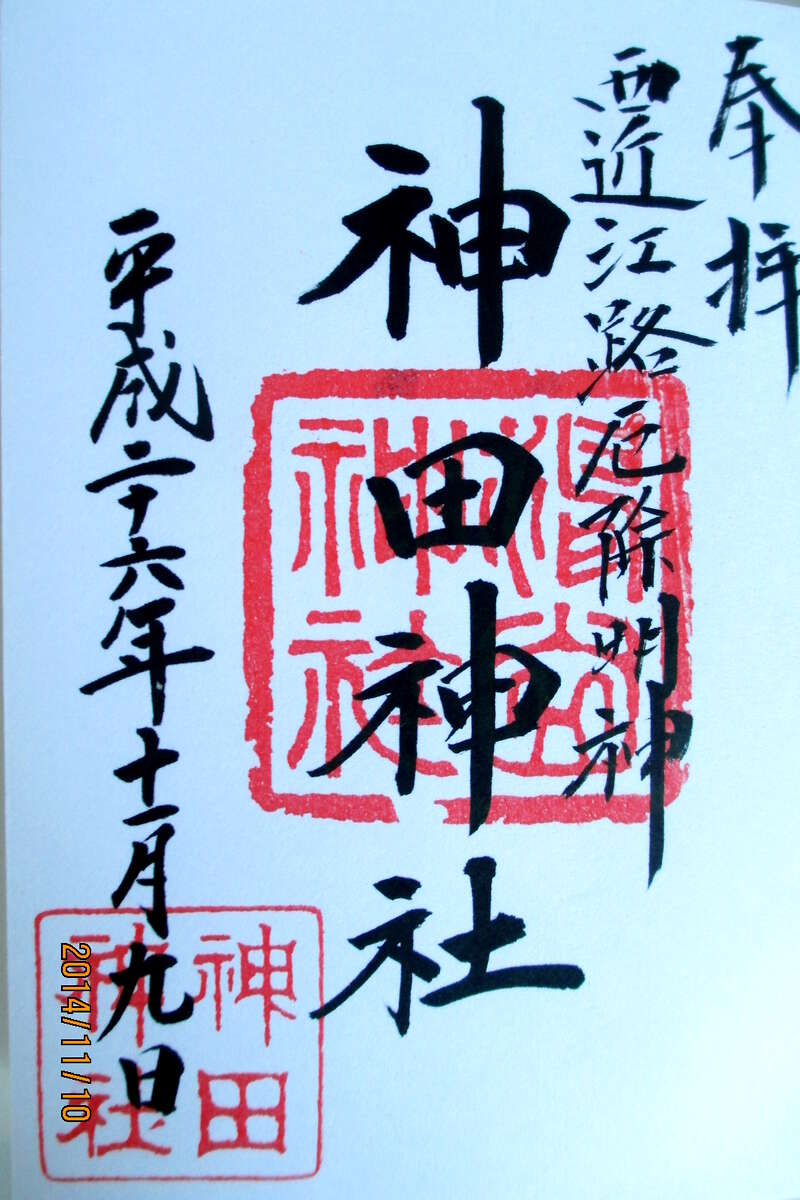 奉拝
西近江路厄除明神
神田神社
平成二十六年十一月九日
神田
神社
2014/11/10